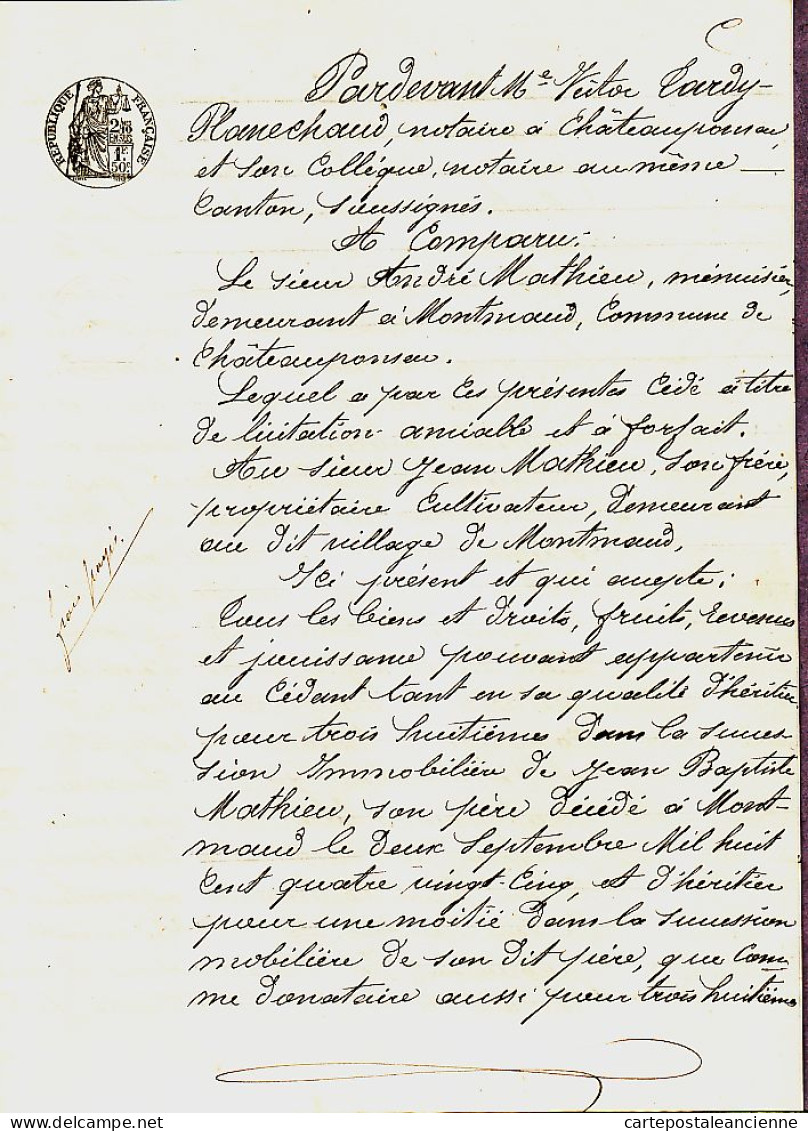 RÉPUBLIQUE FRANÇAISE
1F
50c
Pardevant Me Victor Tardy-
Planechaud, notaire à Châteauponsac,
et son Collégue, notaire au même
Canton, soussignés.
A Comparu:
Le sieur André Mathieu, ménuisier,
demeurant à Montmaud, Commune de
Châteauponsac.
Lequel a par ces présentes cédé à titre
de licitation amiable et à forfait.
Au sieur Jean Mathieu, son frère,
propriétaire Cultivateur, demeurant
au dit village de Montmaud,
Ici présent et qui accepte;
frais payés.
Tous les biens et droits, fruits, revenus
et jouissance pouvant appartenir
au Cédant tant en sa qualité d'héritier
pour trois huitièmes dans la succes-
sion Immobilière de Jean Baptiste
Mathieu, son père décédé à Mont-
maud le deux Septembre Mil huit
cent quatre vingt-Cinq, et d'héritier
pour une moitié dans la succession
mobilière de son dit père, que Com
me donataire aussi pour trois huitièmes
cartepostaleancienne.com